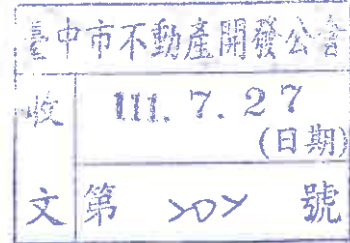 臺中市不動產開發公會
收 111. 7. 27
(日期)
文 第 號